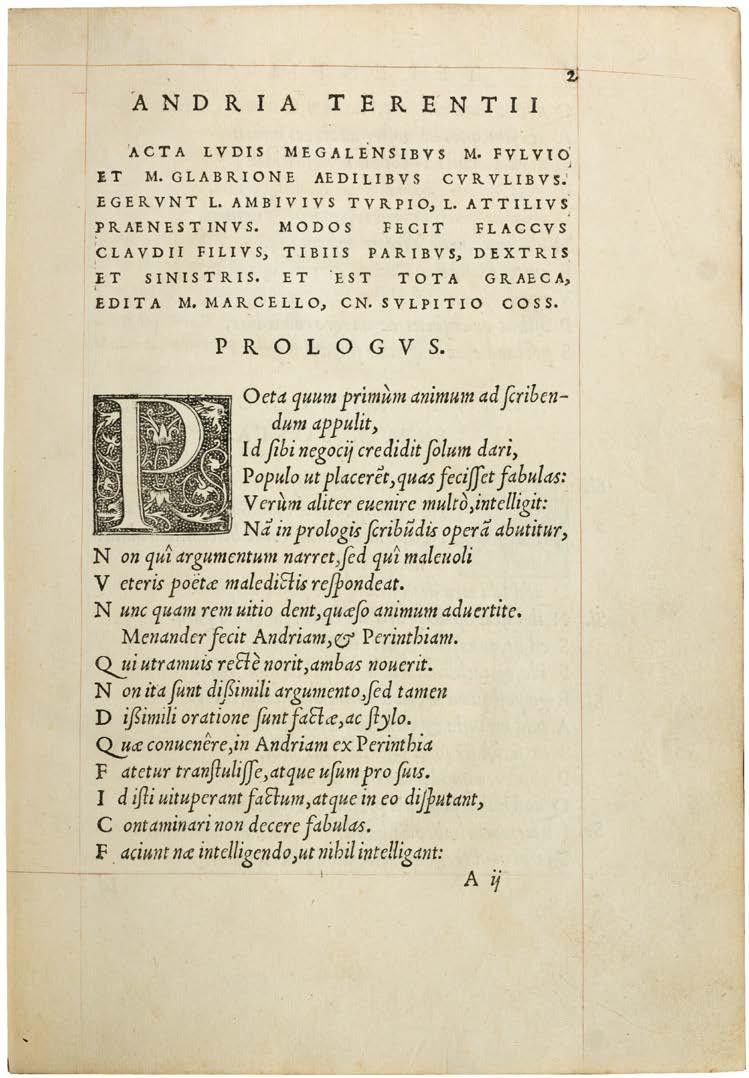 2
ANDRIA TERENTII
ACTA LVDIS MEGALENSIBVS M. FVLVIO
ET M. GLABRIONE AEDILIBVS CVRVLIBVS.
EGERVNT L. AMBIVIVS TVRPIO, L. ATTILIVS
PRAENESTINVS. MODOS FECIT FLACCVS
CLAVDII FILIVS, TIBIIS PARIBVS, DEXTRIS
ET SINISTRIS. ET EST TOTA GRAECA,
EDITA M. MARCELLO, CN. SVLPITIO COSS.
PROLOGVS.
POeta quum primùm animum ad ſcriben-
dum appulit,
Id ſibi negocij credidit ſolum dari,
Populo ut placerēt, quas feciſſet fabulas:
Verùm aliter euenire multò, intelligit:
Nā in prologis ſcribūdis operā abutitur,
Non quî argumentum narret, ſed quî maleuoli
Veteris poëtæ maledictis reſpondeat.
Nunc quam rem uitio dent, quæſo animum aduertite.
Menander fecit Andriam, & Perinthiam.
Qui utramuis rectè norit, ambas nouerit.
Non ita ſunt dißimili argumento, ſed tamen
Dißimili oratione ſunt factæ, ac ſtylo.
Quæ conuenêre, in Andriam ex Perinthia
Fatetur tranſtuliſſe, atque uſum pro ſuis.
Id iſti uituperant factum, atque in eo diſputant,
Contaminari non decere fabulas.
Faciunt næ intelligendo, ut nihil intelligant:
A ij